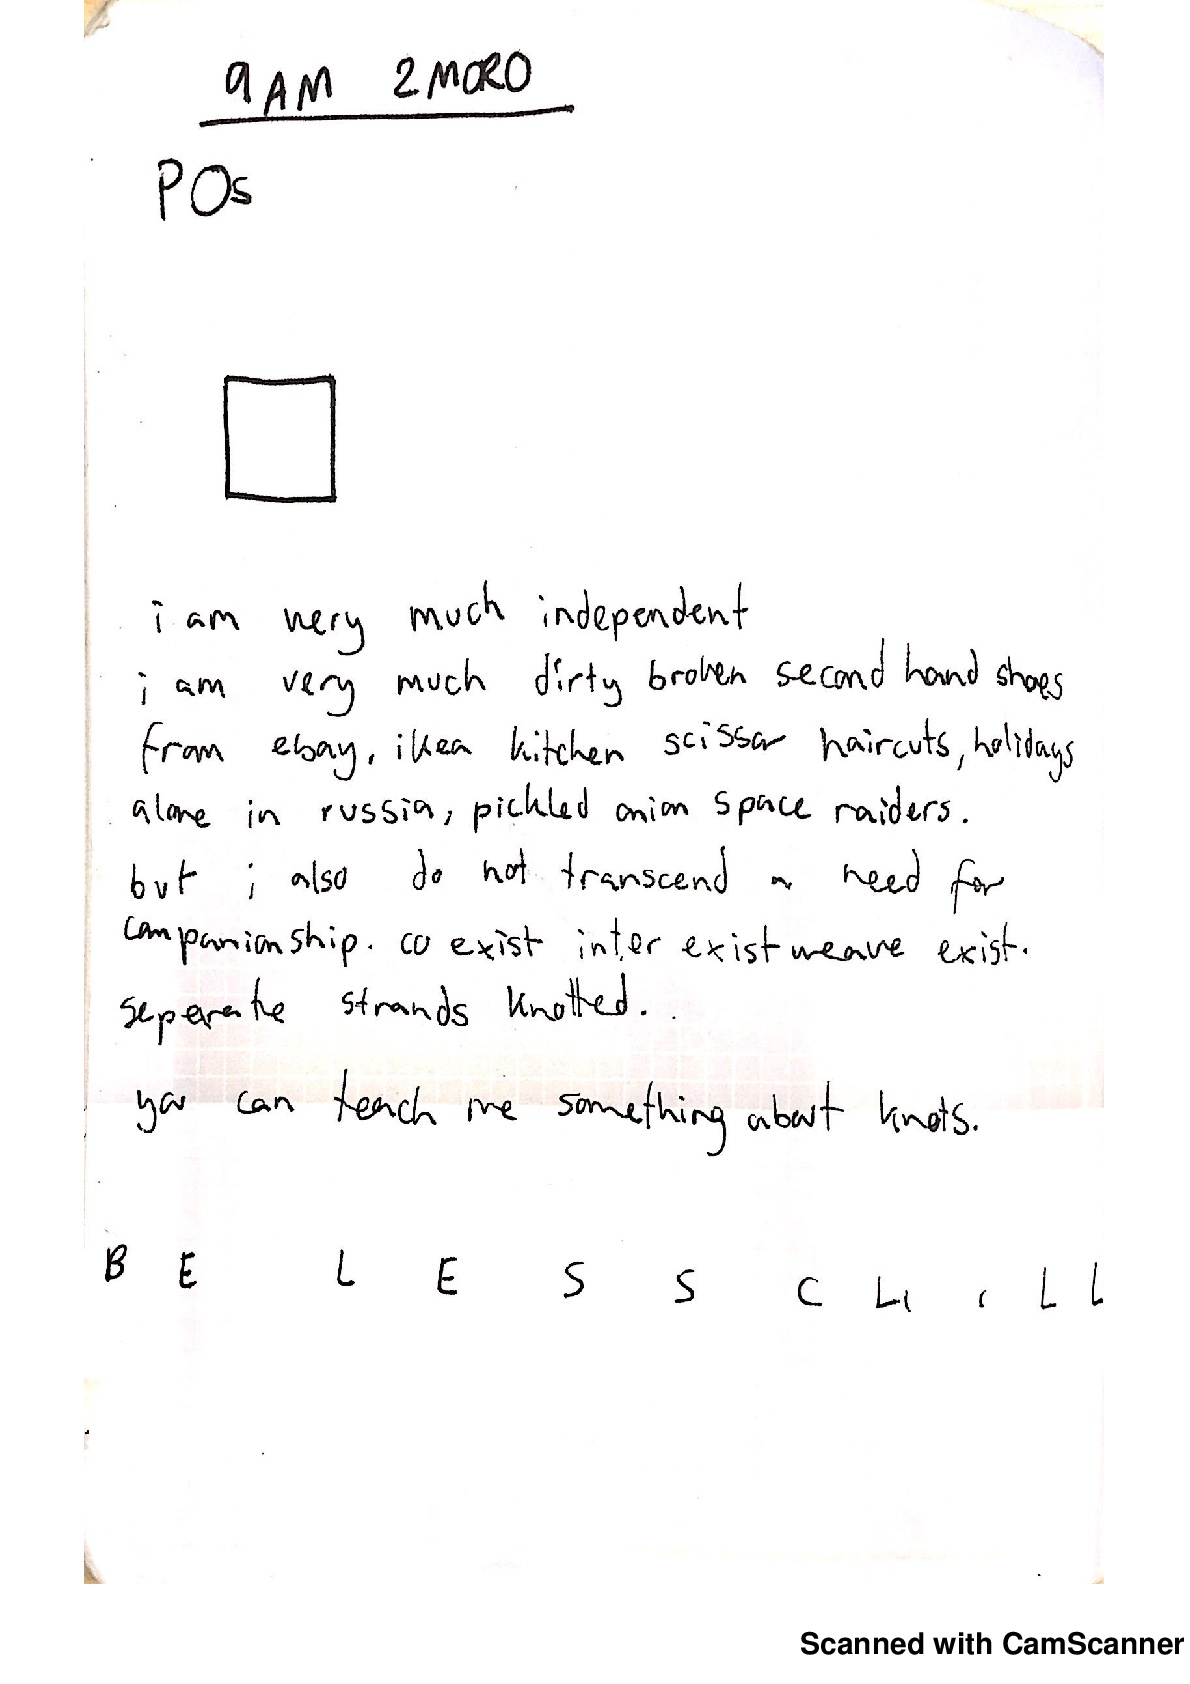 9AM 2MORO
POs
i am very much independent
i am very much dirty broken second hand shoes
from ebay, ikea kitchen scissor haircuts, holidays
alone in russia, pickled onion space raiders.
but i also do not transcend a need for
companionship. co exist inter exist weave exist.
separate strands knotted.
you can teach me something about knots.
B E L E S S C H I L L
Scanned with CamScanner